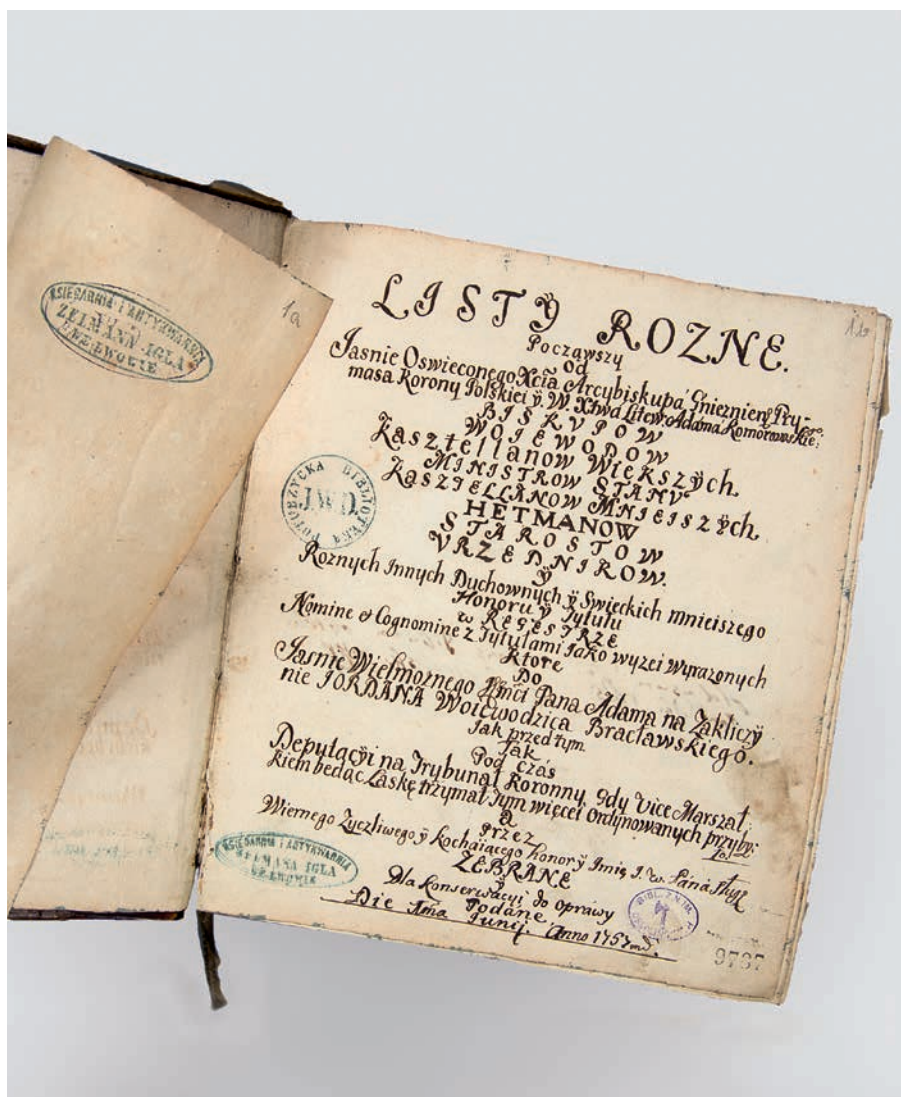 KSIĘGARNIA I ANTYKWARNIA
ZELMANN IGLA
WE LWOWIE
1a
LISTÿ ROZNE.
Począwszy
od
Jasnie Oswieconego Xcia Arcybiskupa Gnieznieng Pry-
masa Korony Polskiei ÿ W. Xtwa Litew: Adama Komorowskie:
BISKUPOW
WOIEWODOW
Kasztellanow Większÿch
MINISTROW STANU
KASZTELLANOW MNIEISZÿCH
HETMANOW
STAROSTOW
VRZĘDNIKOW.
ÿ
Roznych Innych Duchownÿch ÿ Swieckich mnieiszego
Honoru ÿ Tytułu
w REGESTRZE
Nomine et Cognomine z Tytułami Jako wyzei Wyrazonych
Ktore
Do
Jasnie Wielmoznego Jmći Pana Adama na Zakliczÿ
nie JORDANA Woiewodzica Bracławskiego.
Jak przed tym
Tak
Pod czás
Deputacÿi na Trybunał Koronny, gdy Vice Marszał:
kiem bedąc Laskę trzymał Tym więcei Ordynowanych przyby:
ło
A
Przez
Wiernego Zyczliwego ÿ Kochaiącego honor ÿ Imię J. W. Pána Sługę
ZEBRANE
ÿ
Dla Konserwacyi do Oprawy
Podane
Die 1ma Junij. Anno 1757mo.
POTURZYCKA BIBLIOTEKA
J.W.D.
KSIĘGARNIA I ANTYKWARNIA
ZELMANA IGLA
WE LWOWIE
9787